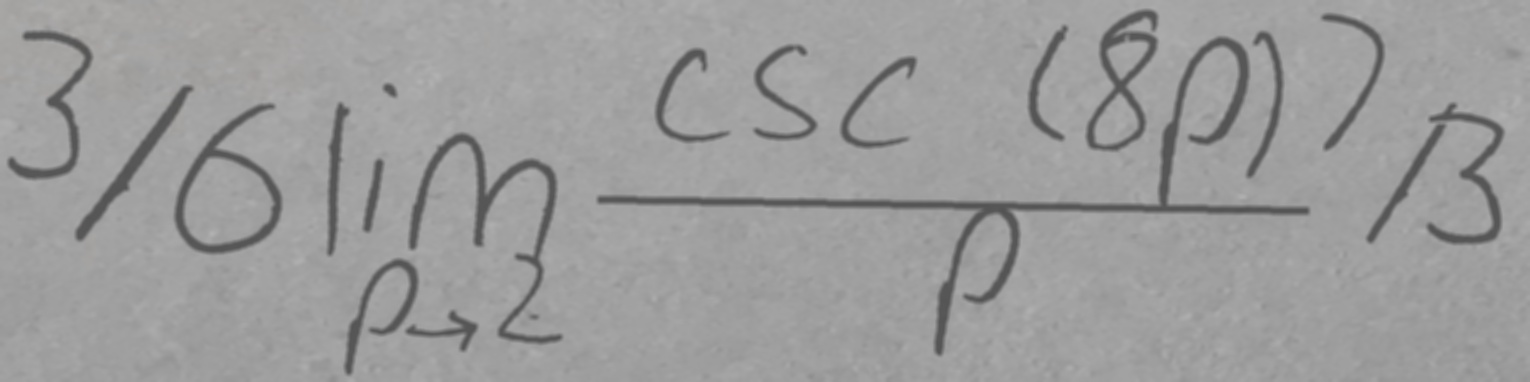 3/6 lim_{p→2} \frac{csc (8p)}{p} 7/3